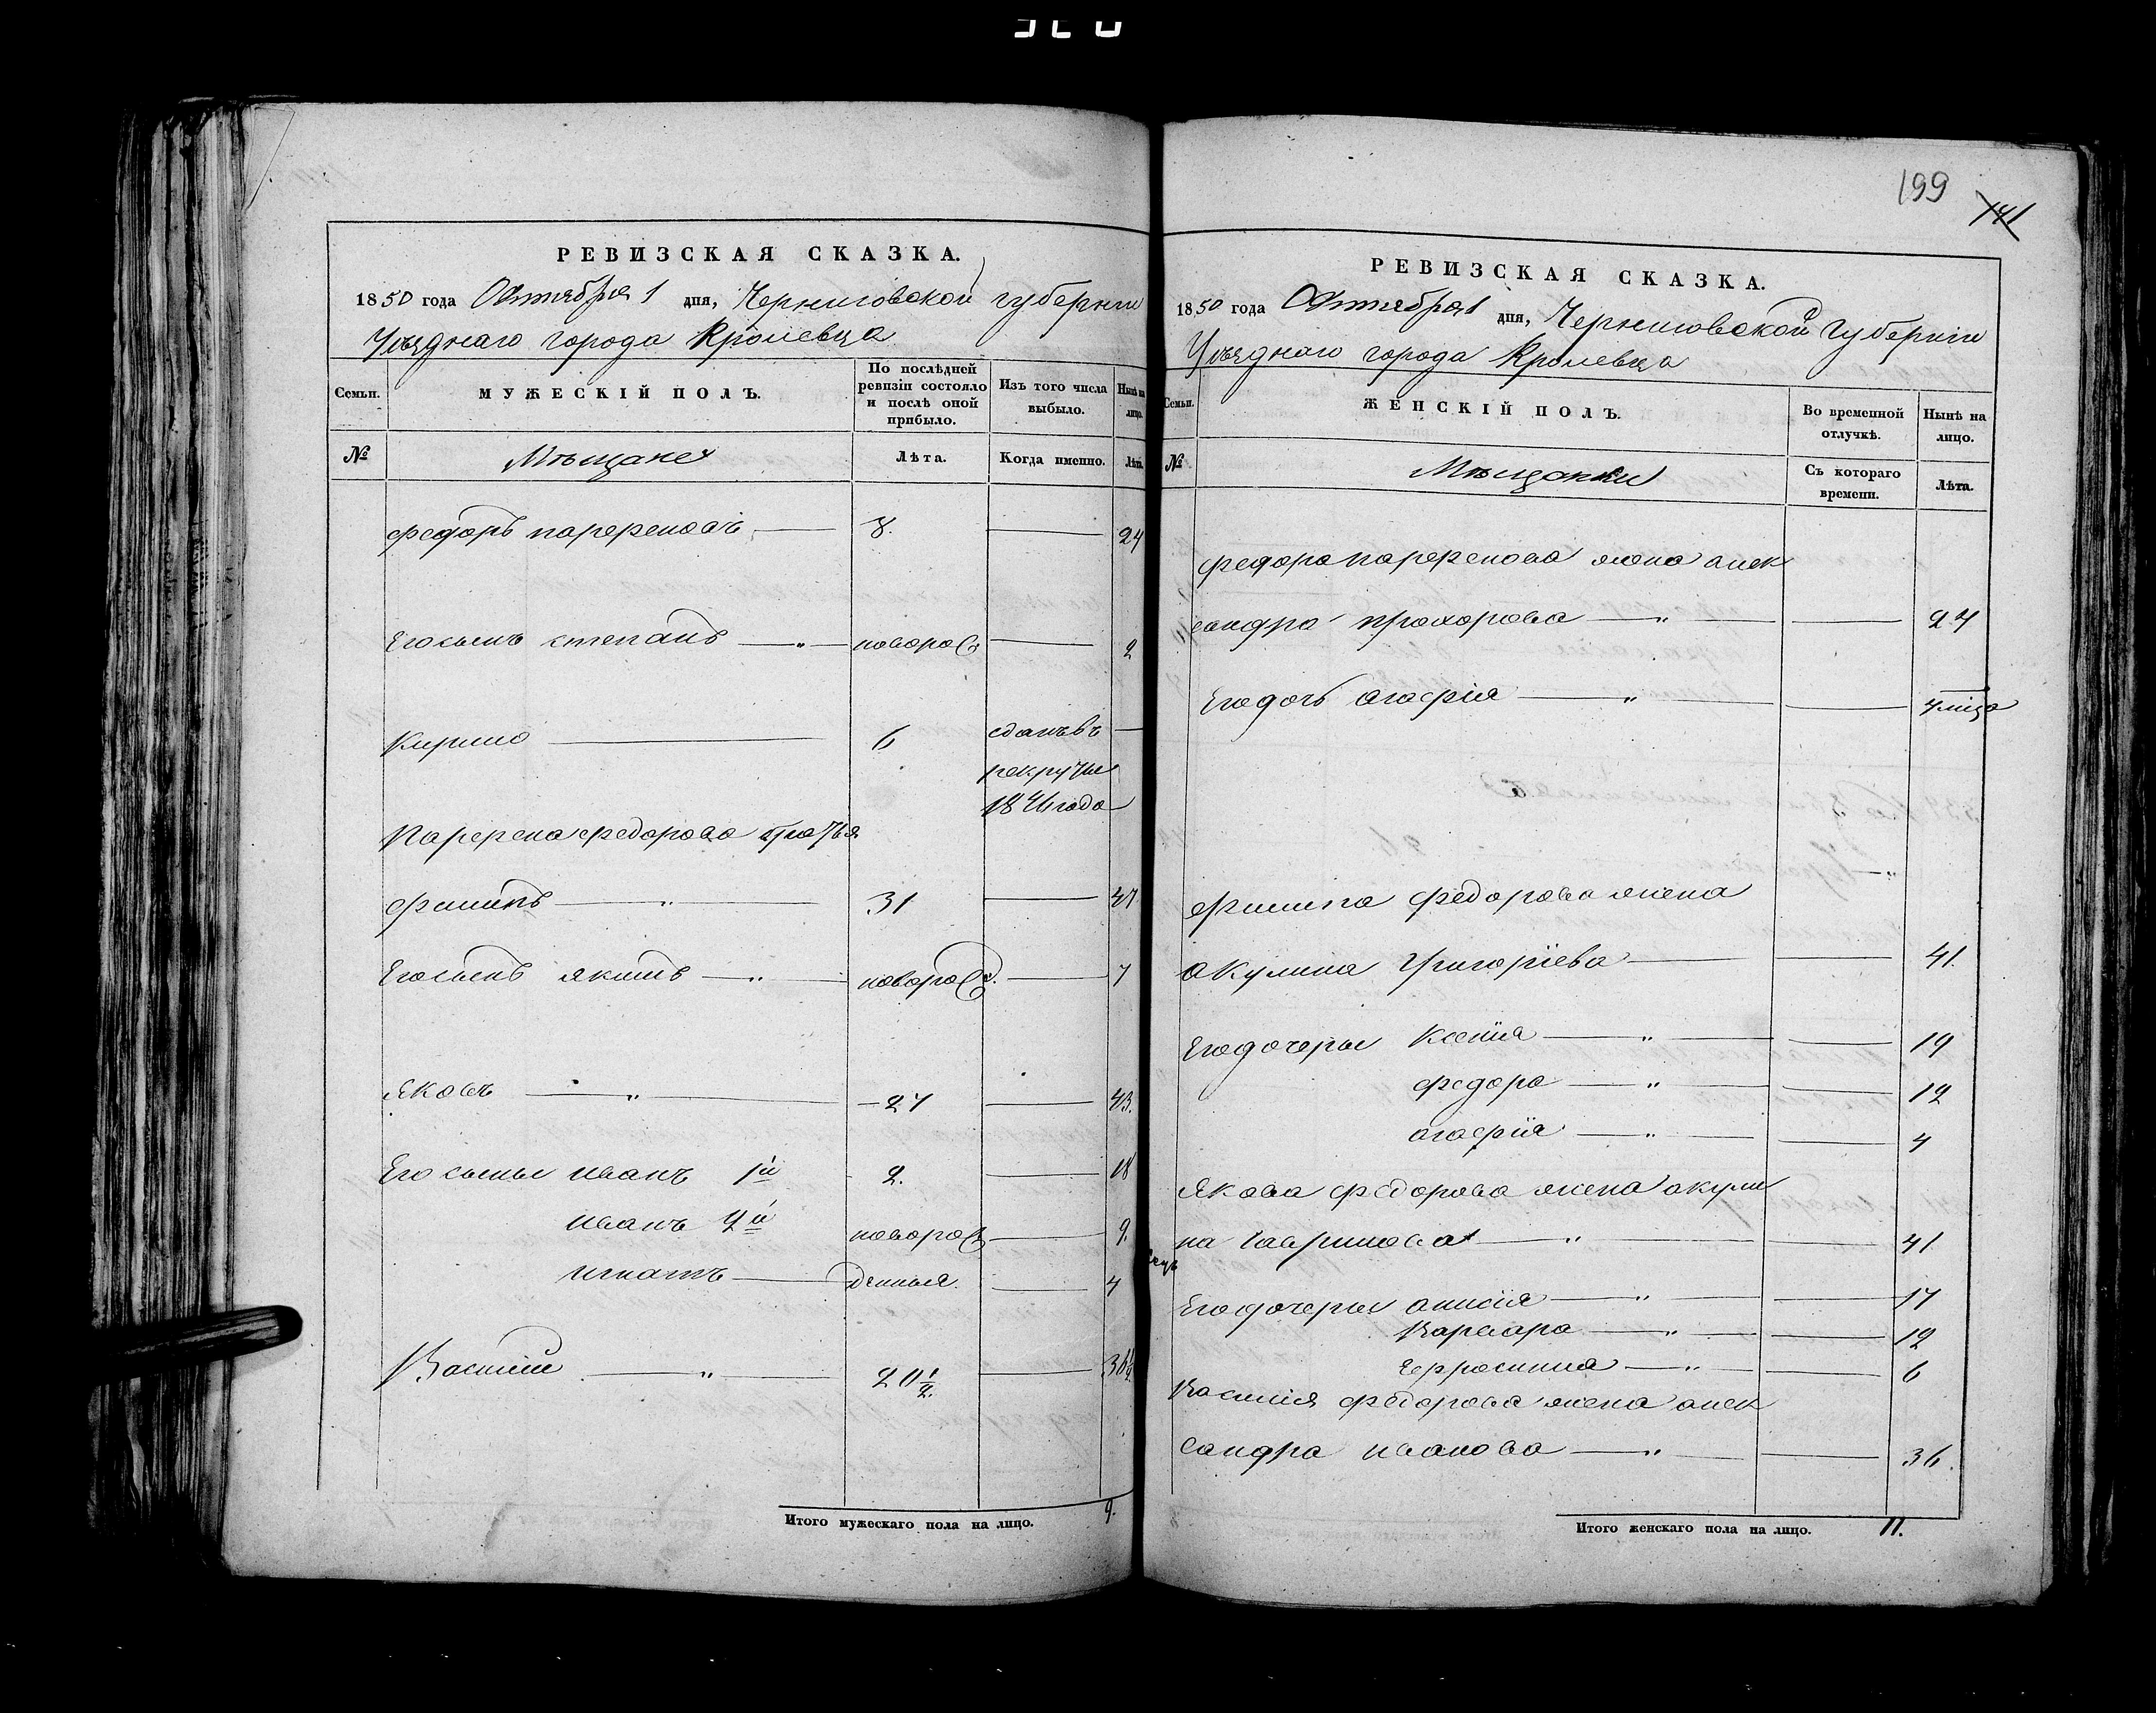 199
141
РЕВИЗСКАЯ СКАЗКА.
1850 года Октября 1 дня, Черниговской губерніи
Уѣзднаго города Кролевца
Семьи.
МУЖЕСКІЙ ПОЛЪ.
По послѣдней ревизіи состояло и послѣ оной прибыло.
Изъ того числа выбыло.
Нынѣ на лицо.
№
Мѣщане
Лѣта.
Когда именно.
Лѣта.
федоръ парфеновъ — 8. — 24
Его сынъ степанъ — " — новорож — 2
Кирило — 6 сданъ въ —
рекруты
1846 года
Парфена федорова братья
филипъ — " — 31 — 47
Его сынъ якимъ — " — новорожд. — 7
Яковъ — " — 27 — 43.
Его сыны иванъ 1й 2. — 18
иванъ 2й новорож — 9.
игнатъ — денныя. — 4
Василій — " — 20 1/2. — 36 1/2
Итого мужескаго пола на лицо. 9.
РЕВИЗСКАЯ СКАЗКА.
1850 года Октября 1 дня, Черниговской Губерніи
Уѣзднаго города Кролевца
Семьи.
ЖЕНСКІЙ ПОЛЪ.
Во временной отлучкѣ.
Нынѣ на лицо.
№
Мѣщанки
Съ котораго времени.
Лѣта.
федора парфенова жена алек
сандра прохорова — " — — 24
Его дочь агафія — " — —
филипа федорова жена
акулина григоріева — — 41.
Его дочеры Ксенія — " — — 19
федора — " — — 12
агафія — " — — 4
Якова федорова жена акули
на гаврилова — " — — 41
Его дочеры анисія — " — — 17
Варвара — " — — 12
Ефросинія — " — — 6
Василія федорова жена алек
сандра иванова — " — — 36.
Итого женскаго пола на лицо. 11.